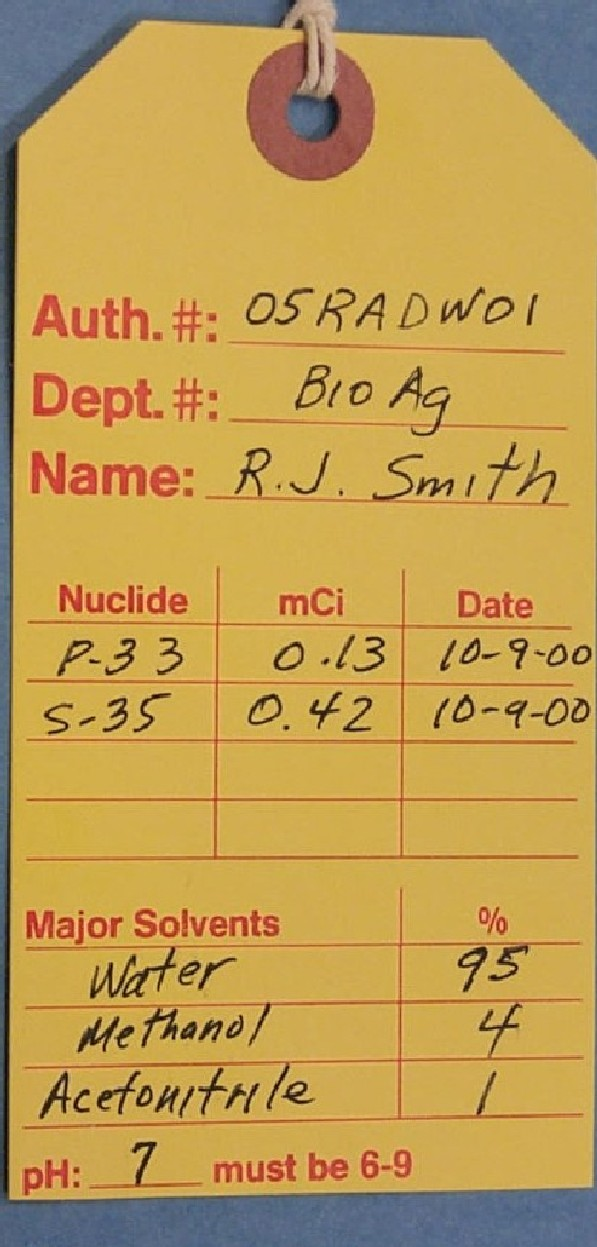 Auth.#: 05RADW01
Dept.#: Bio Ag
Name: R.J. Smith
Nuclide mCi Date
P-33 0.13 10-9-00
S-35 0.42 10-9-00
Major Solvents %
Water 95
Methanol 4
Acetonitrile 1
pH: 7 must be 6-9